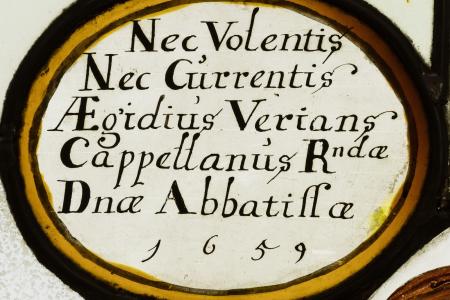 Nec Volentis
Nec Currentis
Ægidius Verians
Cappellanus Rndæ
Dnæ Abbatissæ
1659